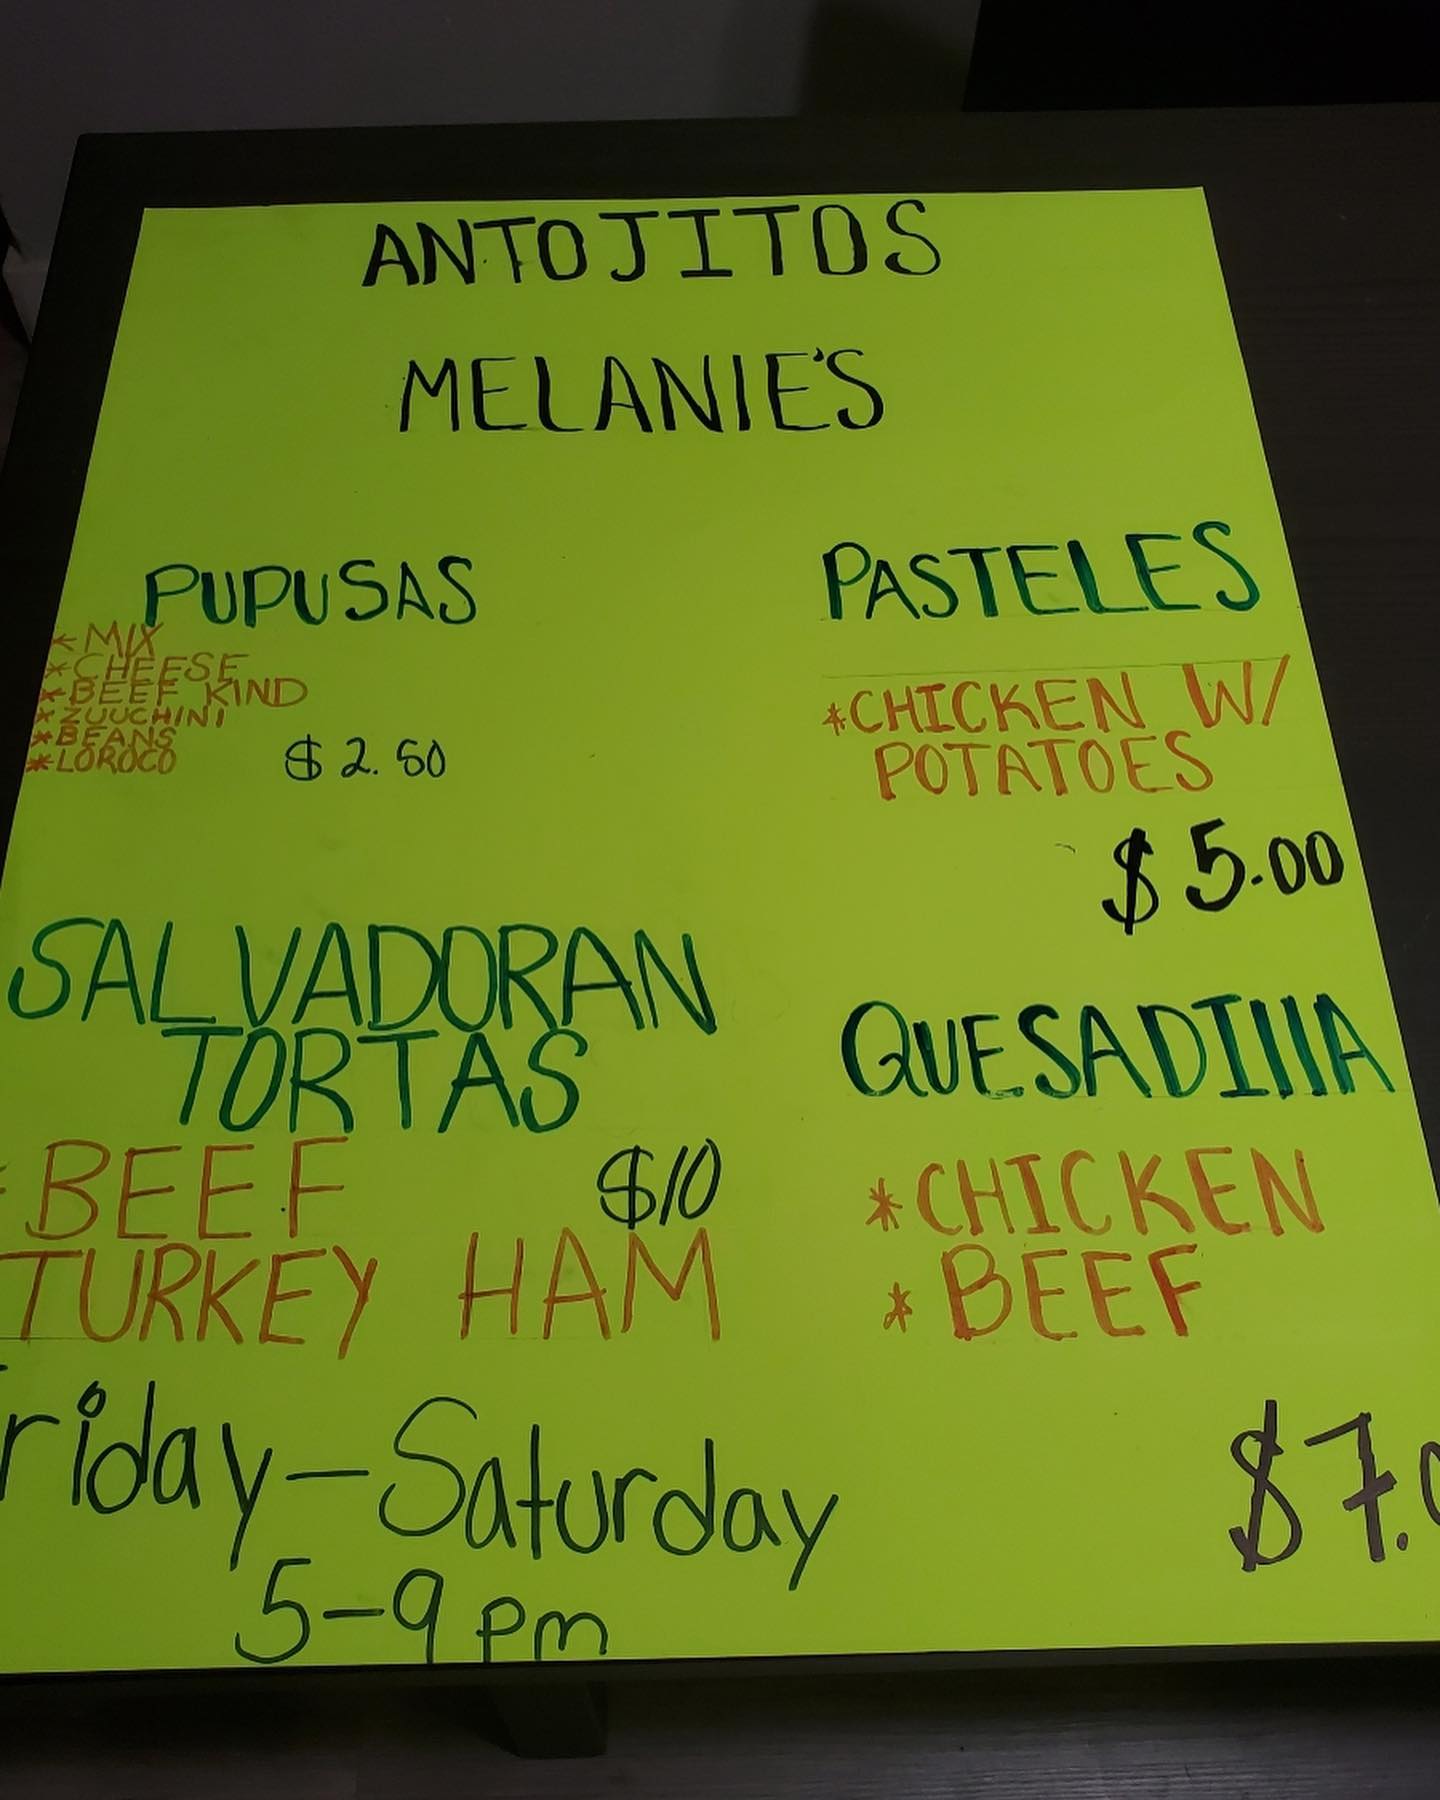 ANTOJITOS
MELANIE'S
PUPUSAS
*MIX
*CHEESE
*BEEF KIND
*ZUUCHINI
*BEANS
*LOROCO
$2.50
PASTELES
*CHICKEN W/
POTATOES
$5.00
SALVADORAN
TORTAS
BEEF $10
TURKEY HAM
QUESADIllA
*CHICKEN
*BEEF
$7.0
Friday-Saturday
5-9 pm